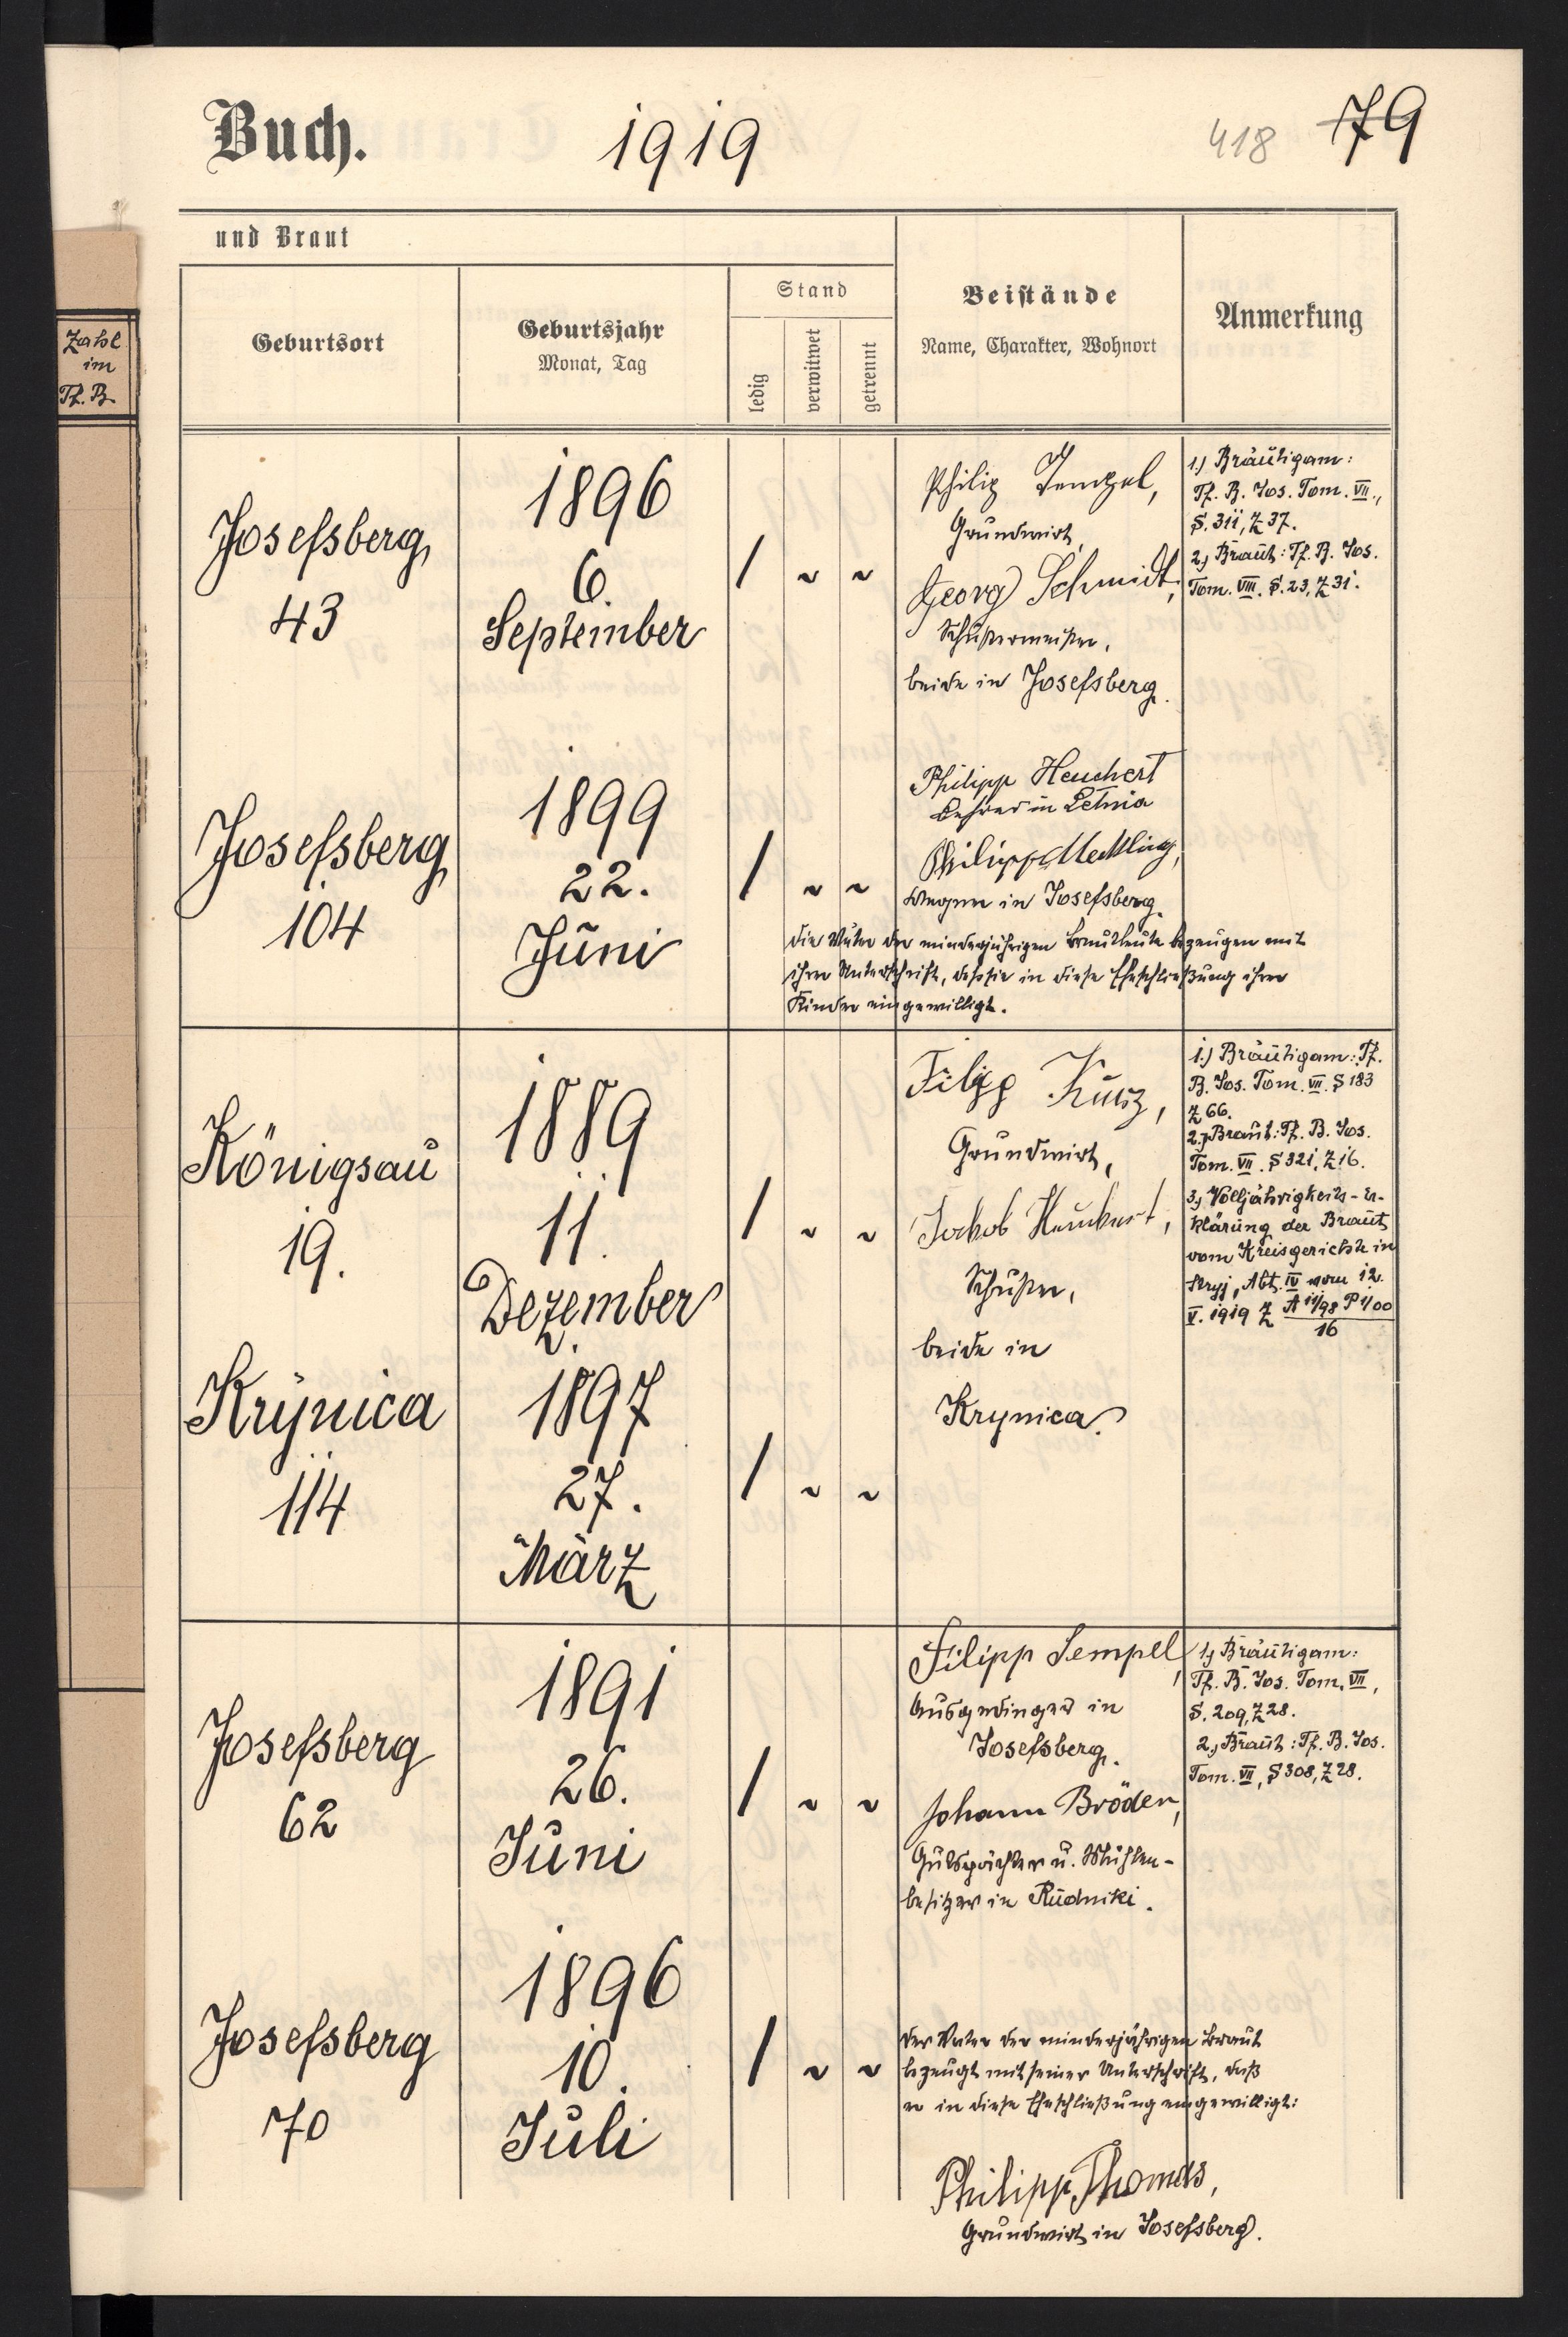 Buch.
1919
418
79
und Braut
Geburtsort
Geburtsjahr
Monat, Tag
Stand
ledig
verwitwet
getrennt
Beistände
Name, Charakter, Wohnort
Anmerkung
Zahl
im
Tf. B.
Josefsberg
43
1896
6.
September
/ ~ ~
Philip Tempel,
Grundwirt,
Georg Schmidt,
Schustermeister,
beide in Josefsberg.
1.) Bräutigam:
Tf. B. Jos. Tom. VII.,
S. 311, Z 37.
2.) Braut: Tf. B. Jos.
Tom. VIII. S. 23, Z 31.
Josefsberg
104
1899
22.
Juni
/ ~ ~
Philipp Heuchert
Lehrer in Letnia
Philipp Mechling,
Wagner in Josefsberg.
Die Väter der minderjährigen Brautleute bezeugen mit
ihrer Unterschrift, daß sie in diese Eheschließung ihrer
Kinder eingewilligt.
Königsau
19.
1889
11.
Dezember
/ ~ ~
Filipp Kurz,
Grundwirt,
Jakob Heuchert,
Schuster,
beide in
Krynica.
1.) Bräutigam: Tf.
B. Jos. Tom. VII. S 183
Z 66.
2.) Braut: Tf. B. Jos.
Tom. VII. S 321, Z 16.
3.) Volljährigkeits-Er-
klärung der Braut
vom Kreisgerichte in
Stryj, Abt. IV vom 12.
V. 1919 Z A 11/98 P 1/00
16
Krynica
114
1897
27.
März
/ ~ ~
Josefsberg
62
1891
26.
Juni
/ ~ ~
Filipp Tempel,
Ausgedinger in
Josefsberg.
Johann Bröder,
Gutspächter u. Mühlen-
besitzer in Rudniki.
1.) Bräutigam:
Tf. B. Jos. Tom. VII,
S. 209, Z 28.
2.) Braut: Tf. B. Jos.
Tom. VII, S 308, Z 28.
Josefsberg
70
1896
10.
Juli
/ ~ ~
Der Vater der minderjährigen Braut
bezeugt mit seiner Unterschrift, daß
er in diese Eheschließung eingewilligt:
Philipp Thomas,
Grundwirt in Josefsberg.